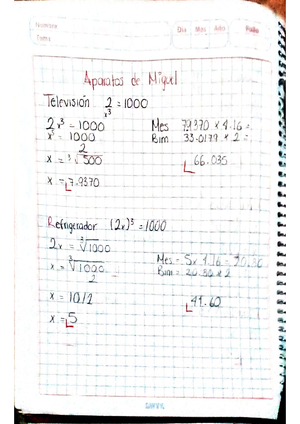 Nombre
Tema
Día Mes Año
Folio
Aparatos de Miguel
Televisión 2/x³ = 1000
2x³ = 1000
x³ = 1000
2
x = ³√500
x = 7.9370
Mes 7.9370 x 4.16 =
Bim 33.0179 x 2 =
66.035
Refrigerador (2x)³ = 1000
2x = ³√1000
x = ³√1000
2
x = 10/2
x = 5
Mes = 5x 4.16 = 20.80
Bim = 20.80 x 2
41.60